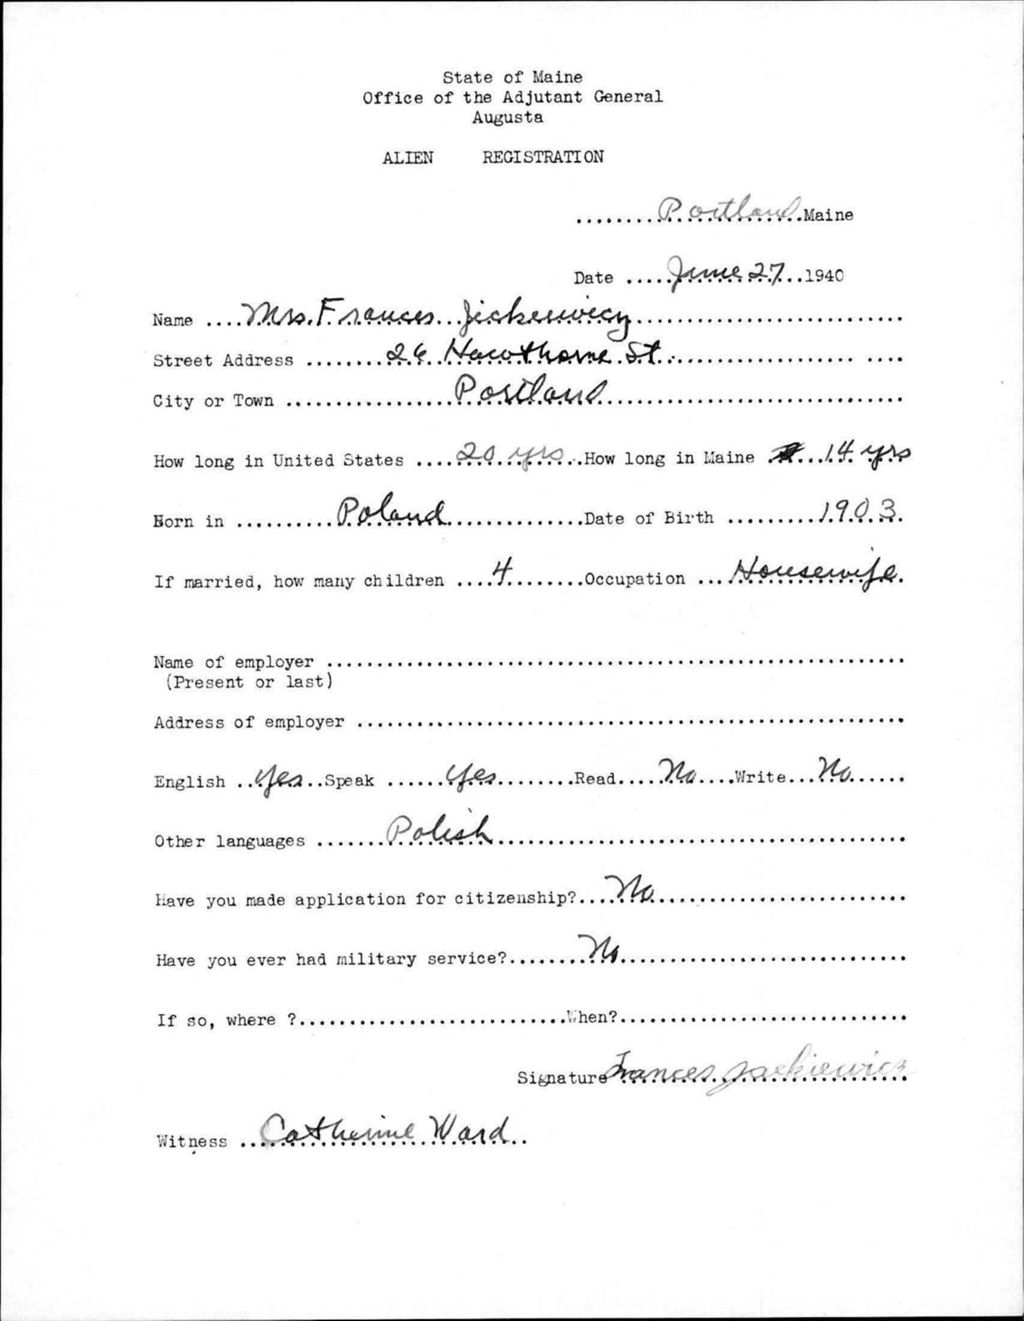 State of Maine
Office of the Adjutant General
Augusta
ALIEN REGISTRATION
........Portland.Maine
Date .....June 27..1940
Name ....Mrs. Frances Jickewicz...........................
Street Address ........26 Hawthorne St........................ ....
City or Town .................Portland..............................
How long in United States ....20 yrs..How long in Maine ...14 yrs
Born in ..........Poland..............Date of Birth .........1903.
If married, how many children ....4........Occupation ...Housewife.
Name of employer ..........................................................
(Present or last)
Address of employer .......................................................
English ..Yes..Speak ......Yes........Read....No....Write...No......
Other languages .......Polish.........................................
Have you made application for citizenship?....No..........................
Have you ever had military service?........No.............................
If so, where ?...........................When?.............................
Signature Frances Jackiewicz
Witness ..Catherine Ward..